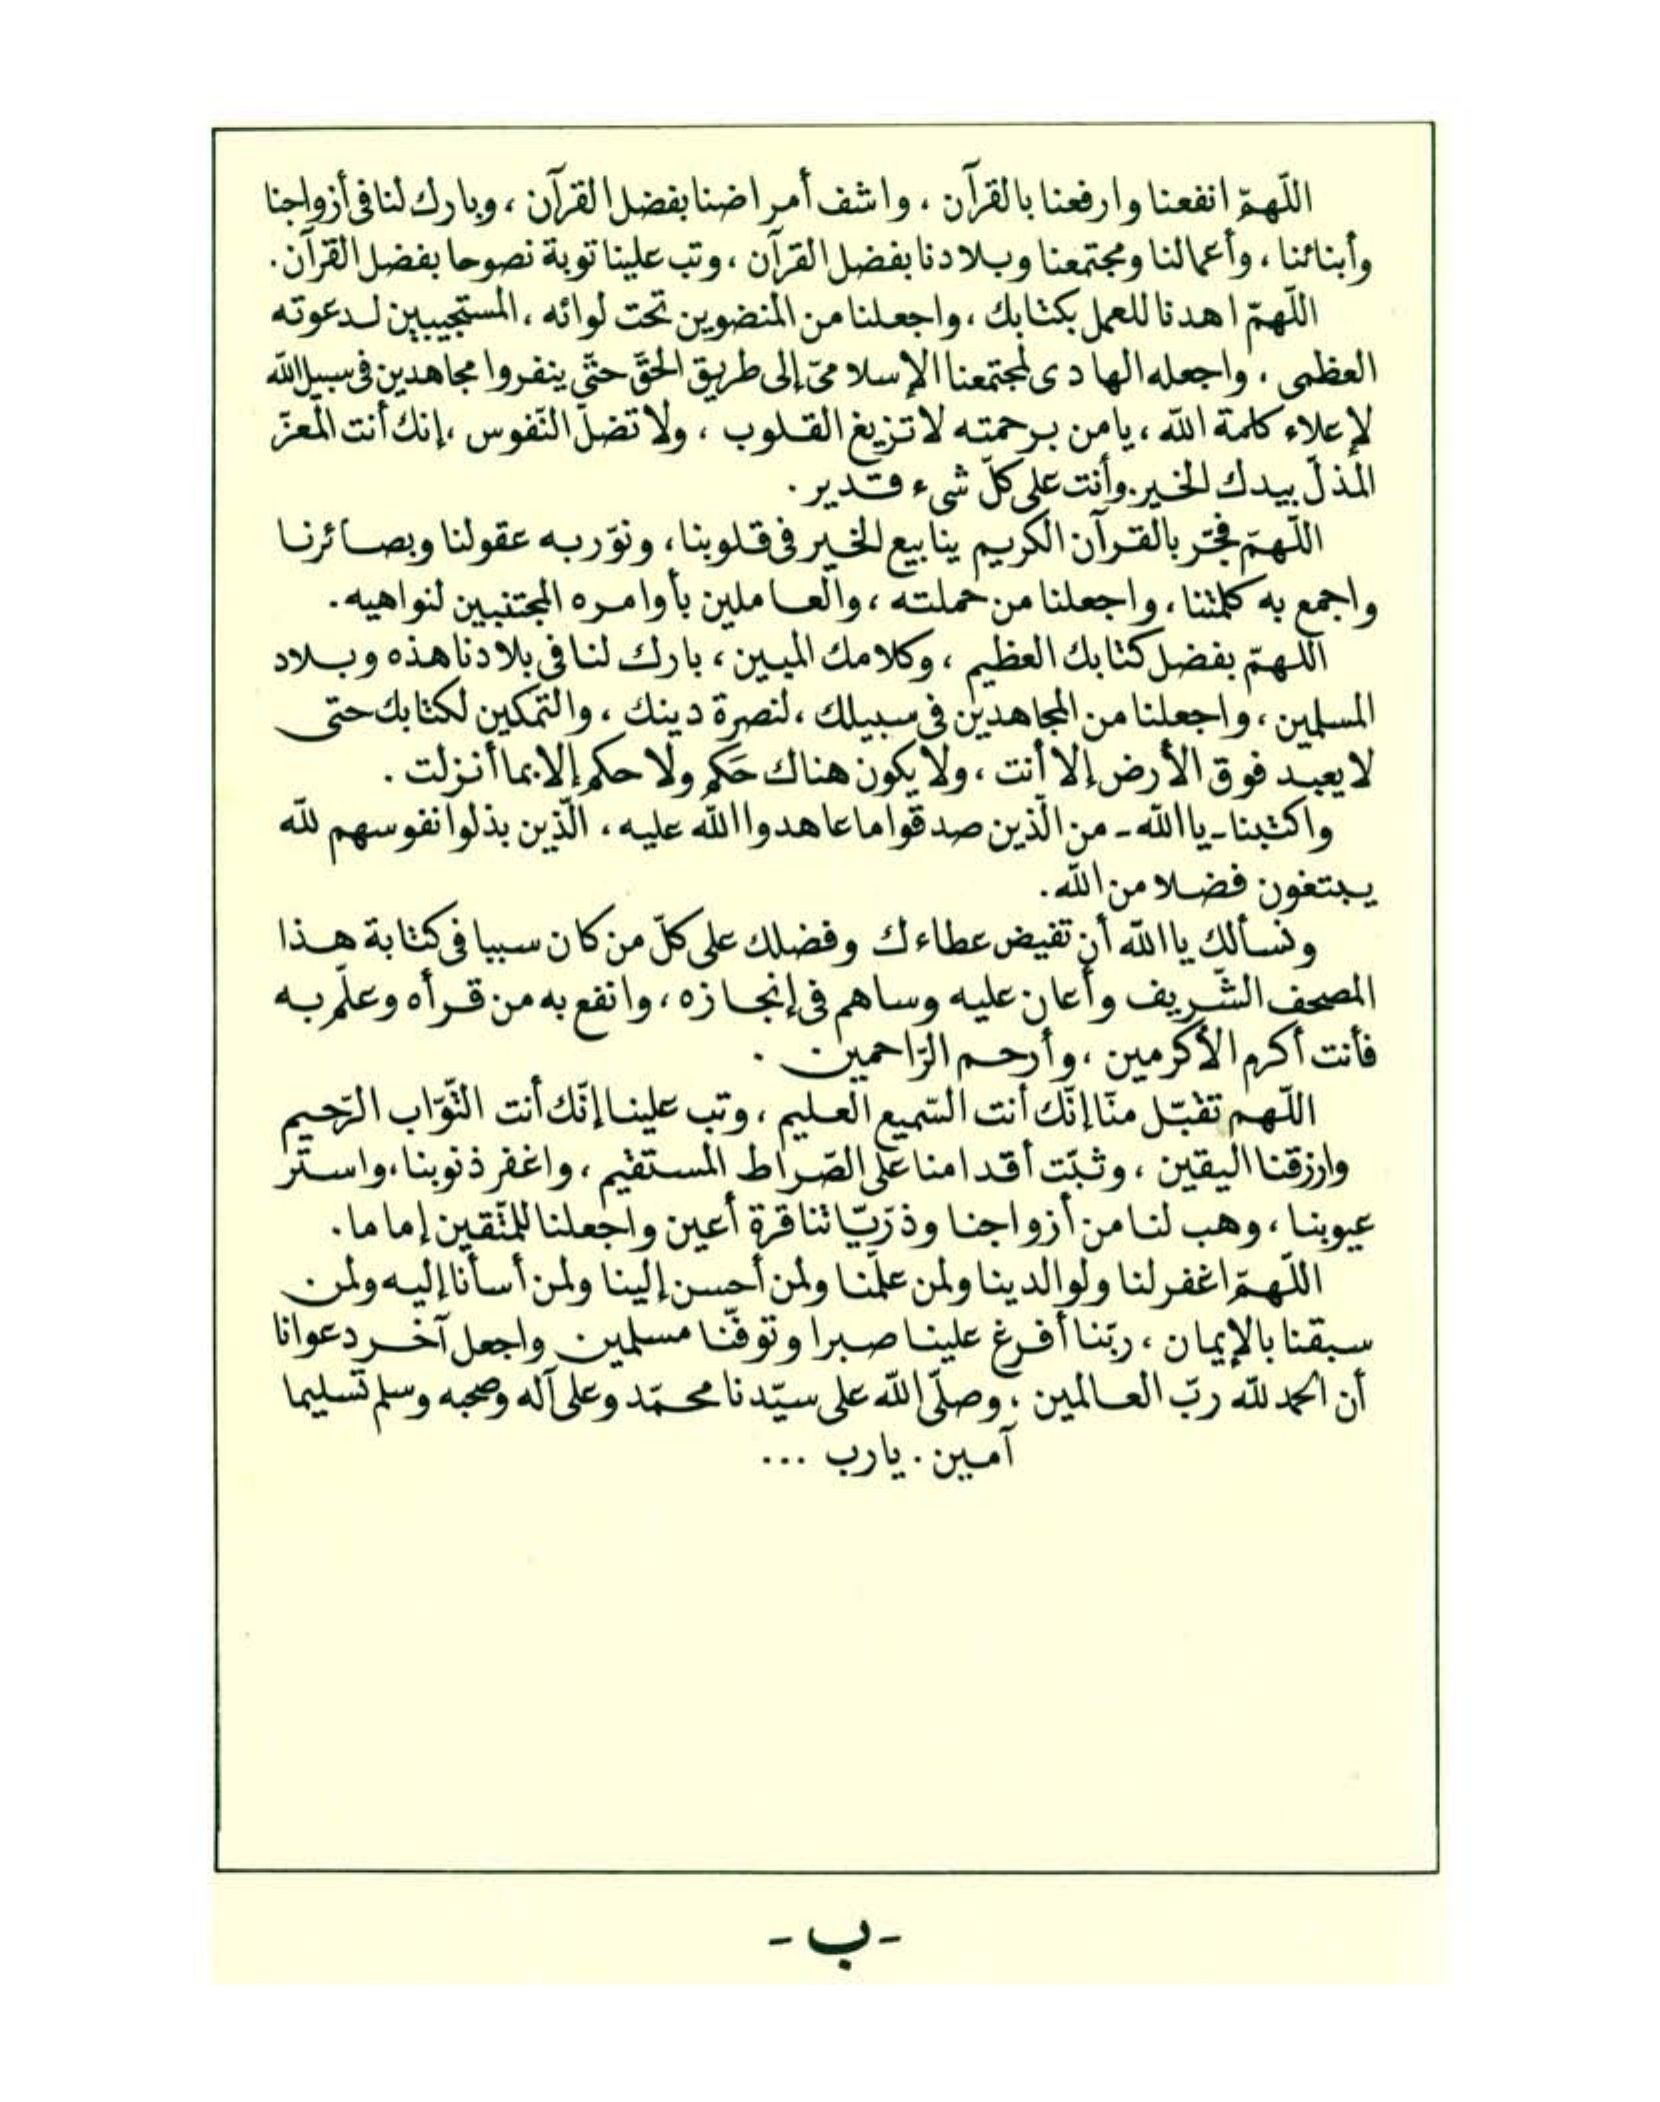 اللّهمّ انفعنا وارفعنا بالقرآن ، واشف أمراضنا بفضل القرآن ، وبارك لنا فى أزواجنا
وأبنائنا ، وأعمالنا ومجتمعنا وبلادنا بفضل القرآن ، وتب علينا توبة نصوحا بفضل القرآن .
اللّهمّ اهدنا للعمل بكتابك ، واجعلنا من المنضوين تحت لوائه ، المستجيبين لدعوته
العظمى ، واجعله الهادى لمجتمعنا الإسلامىّ إلى طريق الحقّ حتّى ينفروا مجاهدين فى سبيل اللّه
لإعلاء كلمة اللّه ، يا من برحمته لا تزيغ القلوب ، ولا تضلّ النّفوس ، إنك أنت المعزّ
المذلّ بيدك الخير. وأنت على كلّ شىء قدير .
اللّهمّ فجّر بالقرآن الكريم ينابيع الخير فى قلوبنا ، ونوّر به عقولنا وبصائرنا
واجمع به كلمتنا ، واجعلنا من حملته ، والعاملين بأوامره المجتنبين لنواهيه .
اللهمّ بفضل كتابك العظيم ، وكلامك المبين ، بارك لنا فى بلادنا هذه وبلاد
المسلمين ، واجعلنا من المجاهدين فى سبيلك ، لنصرة دينك ، والتمكين لكتابك حتى
لا يعبد فوق الأرض إلا أنت ، ولا يكون هناك حَكم ولا حكم إلا بما أنزلت .
واكتبنا - يا اللّه - من الّذين صدقوا ما عاهدوا اللّه عليه ، الّذين بذلوا نفوسهم للّه
يبتغون فضلا من اللّه .
ونسألك يا اللّه أن تفيض عطاءك وفضلك على كلّ من كان سببا فى كتابة هذا
المصحف الشّريف وأعان عليه وساهم فى إنجازه ، وانفع به من قرأه وعلّم به
فأنت أكرم الأكرمين ، وأرحم الرّاحمين .
اللّهم تقبّل منّا إنّك أنت السّميع العليم ، وتب علينا إنّك أنت التّوّاب الرّحيم
وارزقنا اليقين ، وثبّت أقدامنا على الصّراط المستقيم ، واغفر ذنوبنا ، واستر
عيوبنا ، وهب لنا من أزواجنا وذرّيّاتنا قرة أعين واجعلنا للمتّقين إماما .
اللّهمّ اغفر لنا ولوالدينا ولمن علّمنا ولمن أحسن إلينا ولمن أسأنا إليه ولمن
سبقنا بالإيمان ، ربّنا أفرغ علينا صبرا وتوفّنا مسلمين واجعل آخر دعوانا
أن الحمد للّه ربّ العالمين ، وصلّى اللّه على سيّدنا محمّد وعلى آله وصحبه وسلم تسليما
آمين . يا رب ...
- ب -